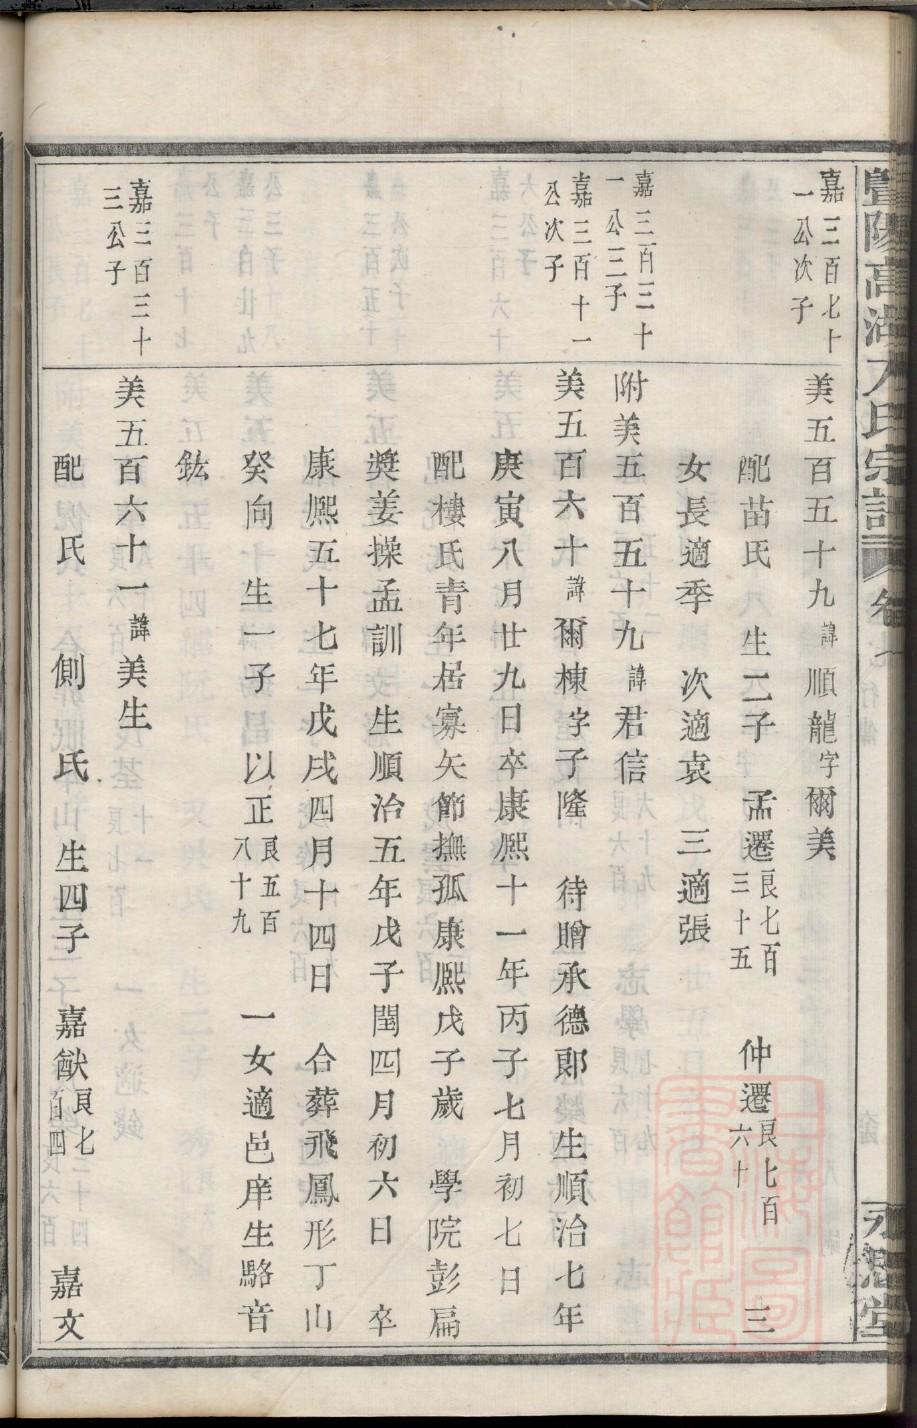 嘉三百七十一公次子
美五百五十九諱順龍字爾美
配苗氏 生二子 孟遷良七百三十五 仲遷良七百六十 三
女長適季 次適袁 三適張
嘉三百三十一公三子
附美五百五十九諱君信
嘉三百十一公次子
美五百六十諱爾棟字子隆 待贈承德郎 生順治七年
庚寅八月廿九日卒康熙十一年丙子七月初七日
配樓氏青年居寡矢節撫孤康熙戊子歲 學院彭扁
獎姜操孟訓 生順治五年戊子閏四月初六日 卒
康熙五十七年戊戌四月十四日 合葬飛鳳形丁山
癸向 生一子 以正良五百八十九 一女適邑庠生駱音
鈜
嘉三百三十三公子
美五百六十一諱美生
配 氏 側 氏 生四子 嘉猷良七百四 嘉文